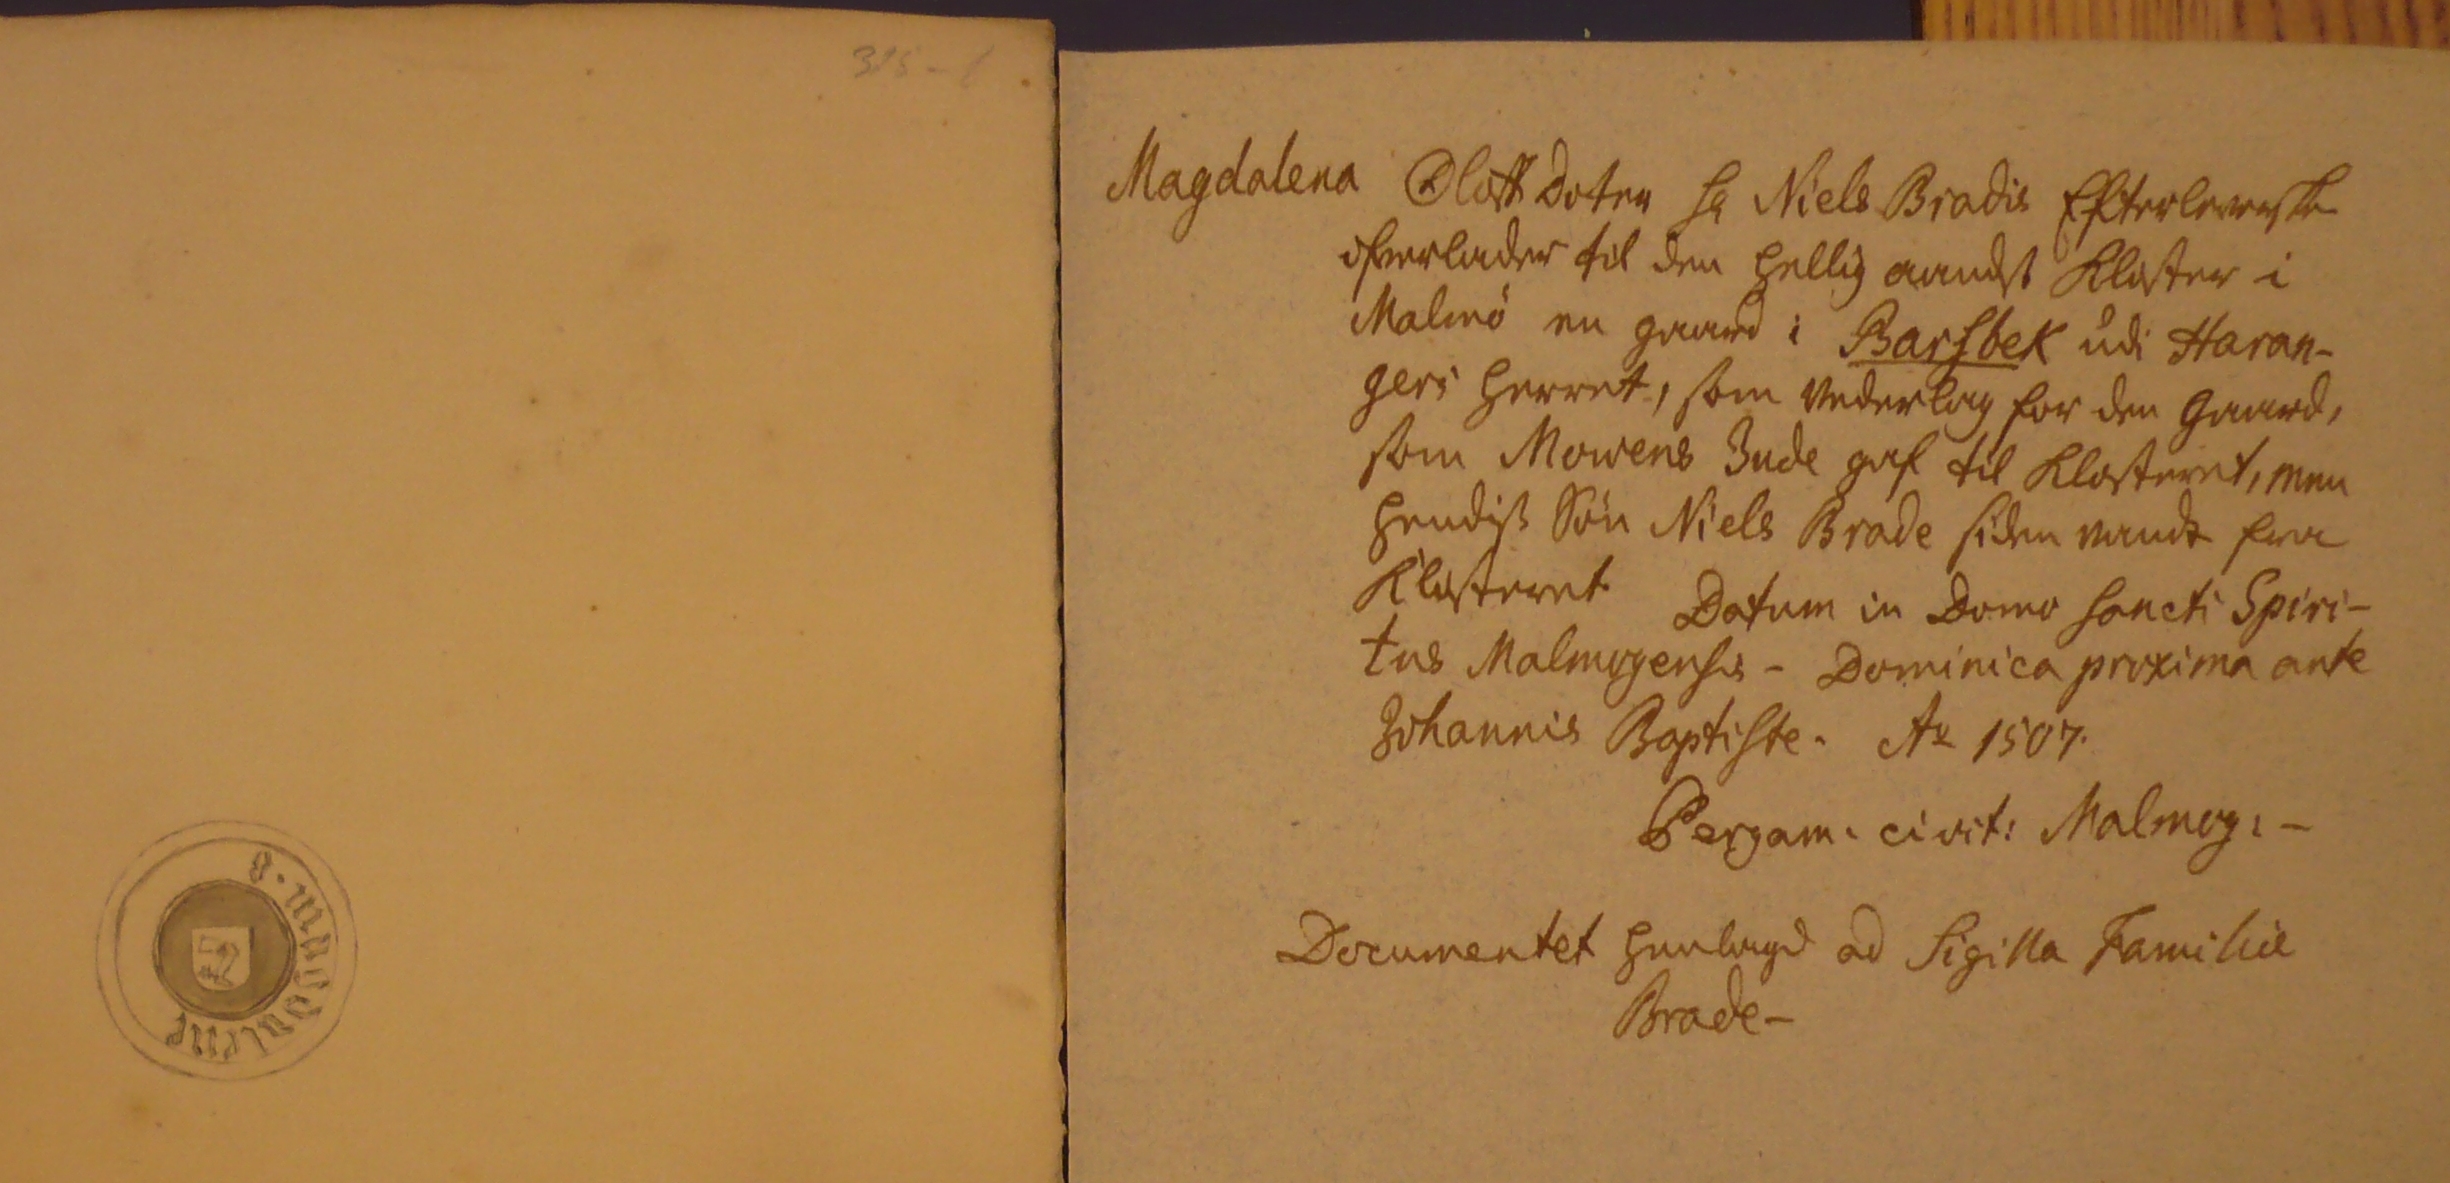 Magdalena Oloff Doter Hr Niels Bradis Efterleverske
ofverlader til den hellig aands Kloster i
Malmö en gaard i Barsbek udi Haran-
gers herret, som Vederlag for den Gaard,
som Mowens Jude gaf til Klosteret, men
hendis Sön Niels Brade siden vandt fra
Klosteret Datum in Domo Sancti Spiri-
tus Malmogensis - Dominica proxima ante
Johannis Baptiste. Ao 1507.
Pergam: civit: Malmog: -
Documentet henlagd ad Sigilla Familiæ
Brade -
s. magdalene